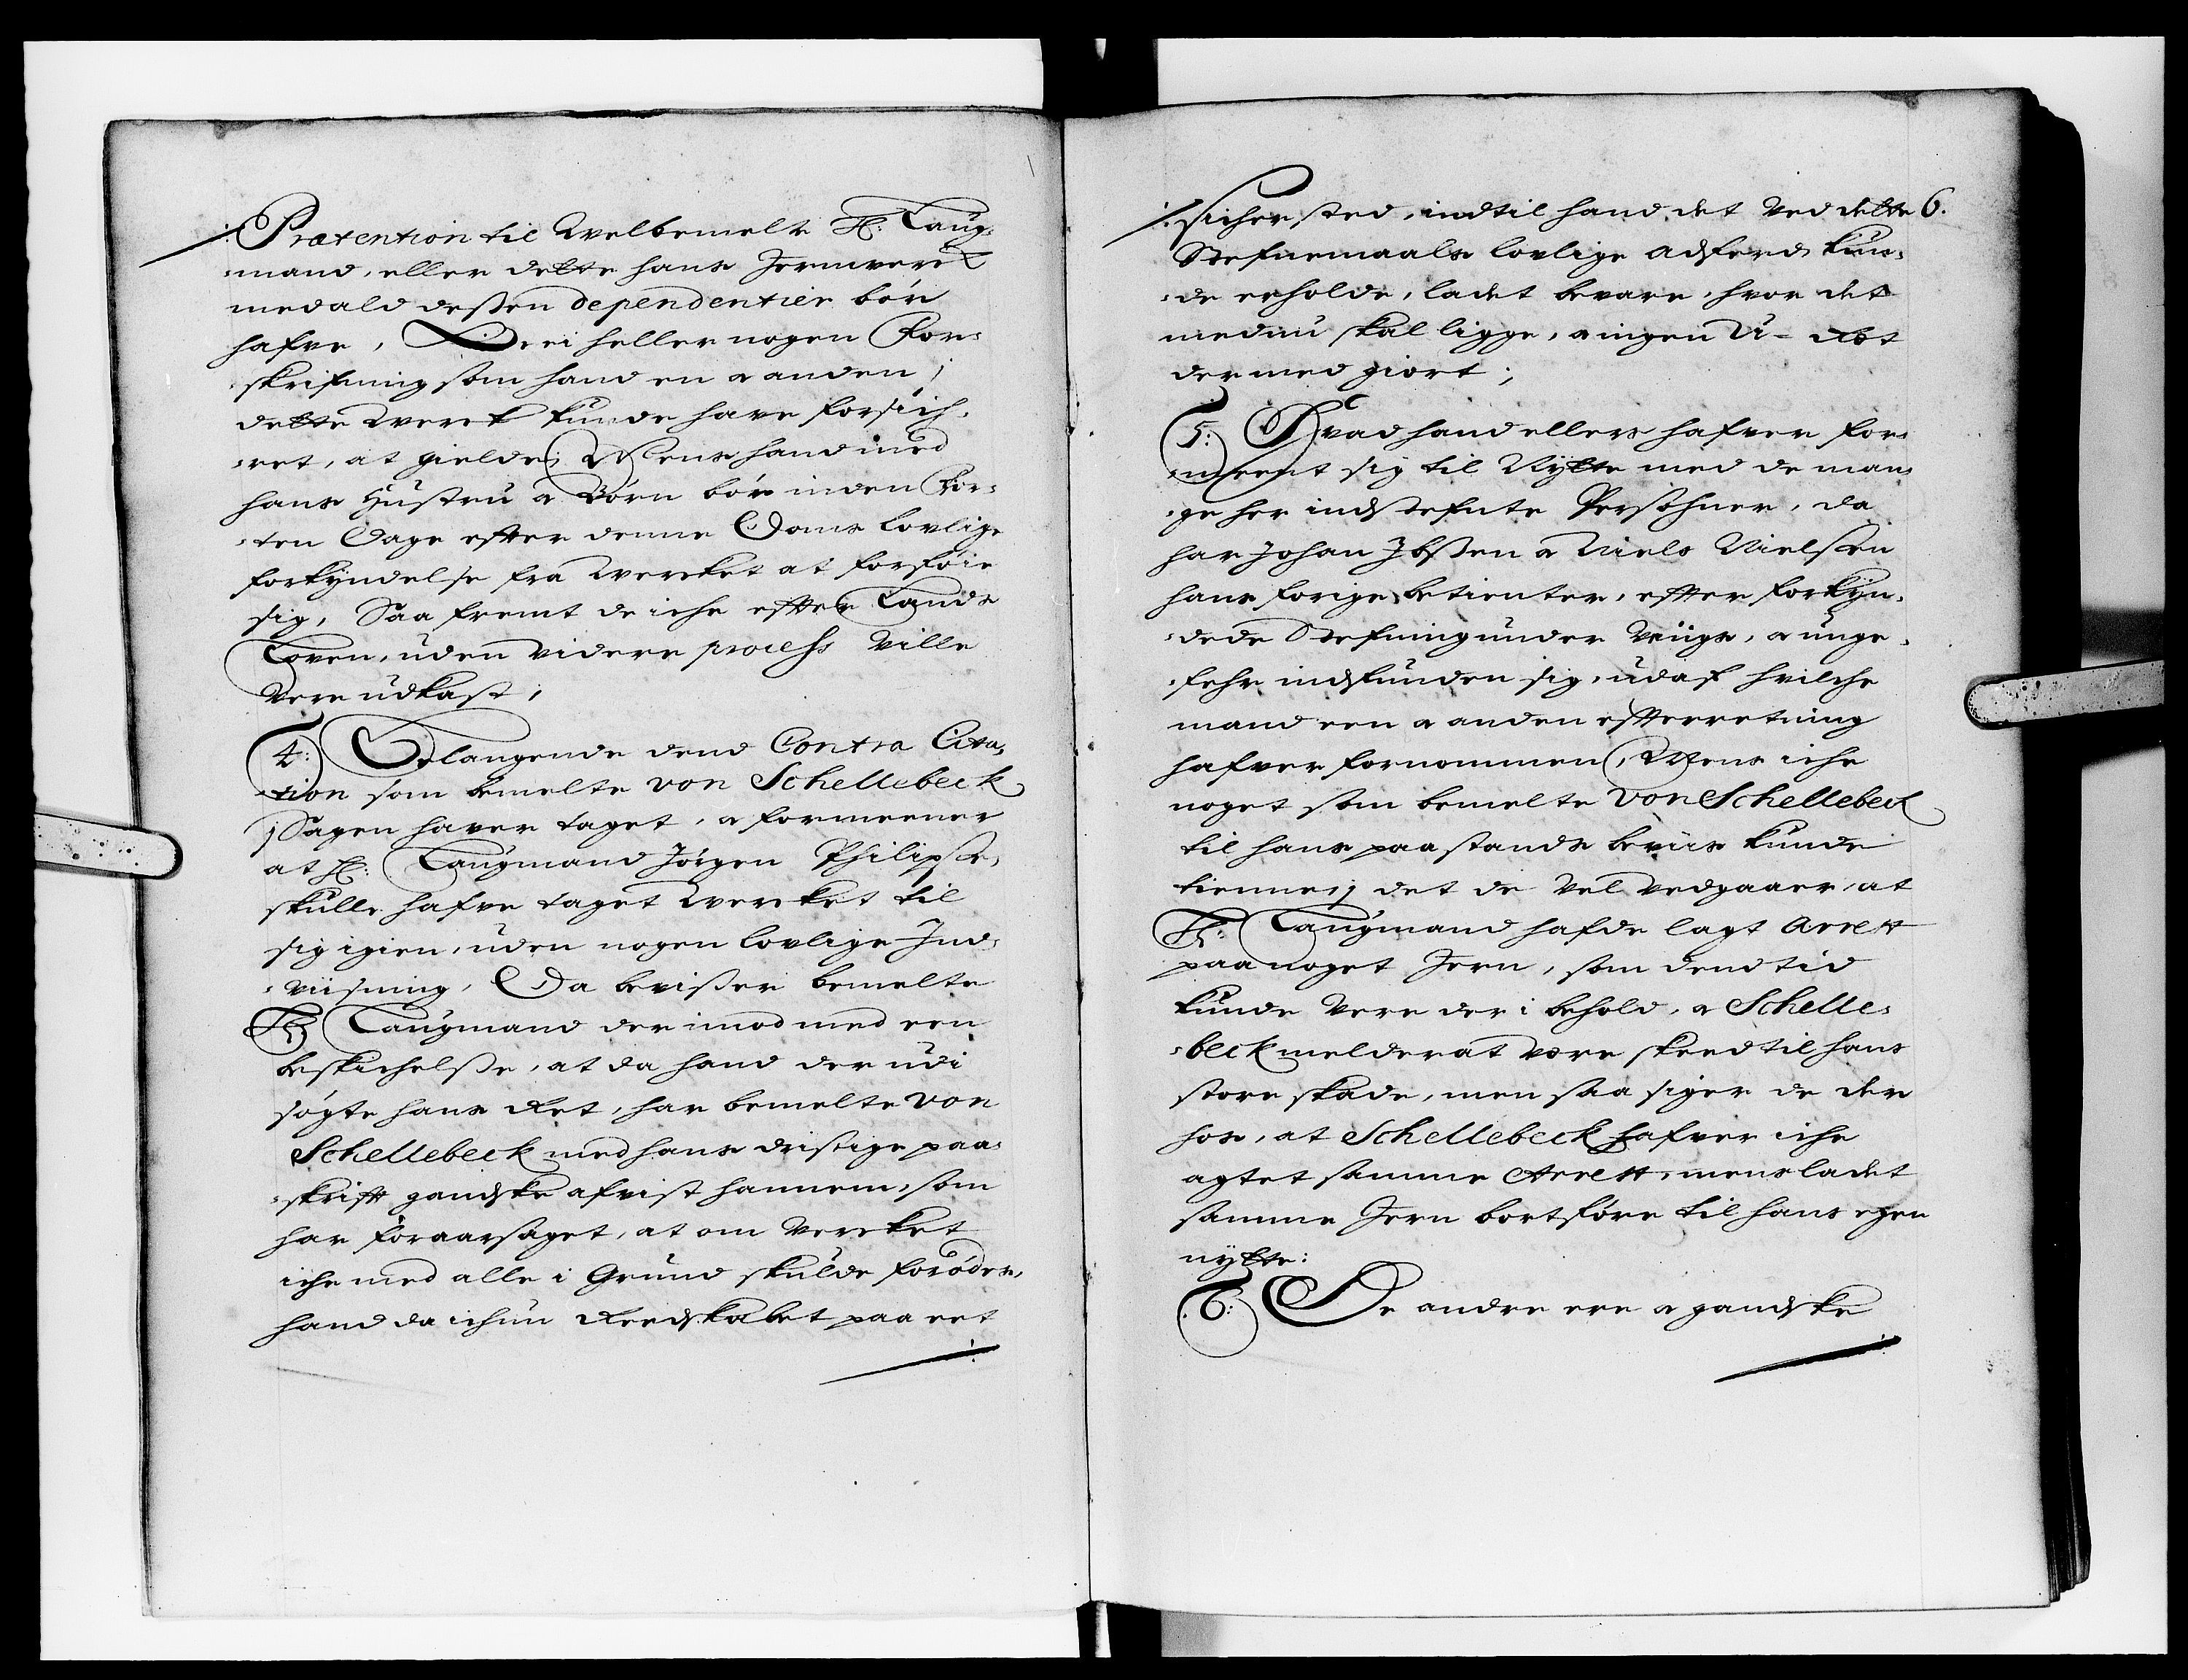 Prætention til Welbemelte H: Laug-
mand, eller dette hans Jernwerck
med ald deßen dependentier bör
hafve, Og ei heller nogen For-
skrifning som hand en a anden j
dette Werck kunde have forsich-
ret, at gielde; Mens hand med
hans Hustru a Börn bör inden fior-
ten Dage efter denne Doms lovlige
forkyndelse fra Wercket at forföie
sig, Saa fremt de iche efter Lands
Loven, uden videre process ville
Vere udkast;
4: Belangende dend Contra Cita-
tion som bemelte von Schellebeck
j Sagen haver taget, a formeener
at H: Laugmand Jörgen Philipsße,
skulle hafve taget Wercket til
sig igien, uden nogen lovlige Ind-
viisning, Da bevißer bemelte
H: Laugmand der imod med een
beskichelße, at da hand der udi
sögte hans Ret, har bemelte von
Schellebeck med hans dristige paa-
skrift gandske afvist hannem, som
har foraarsaget, at om Vercket
iche med alle i Grund skulde forödes,
hand da ichun Reedskabet paa eet
sicher sted, indtil hand det ved dette 6.
Stefnemaals lovlige adferd kun-
de erholde, ladet bevare, hvor det
med nu skal ligge, a ingen U-Ret
der med giort;
5: Hvad hand ellers hafver for-
meent sig til Nytte med de man-
ge her indstefnte Persohner, da
har Johan Ibßen a Niels Nielßen
hans forige betienter, efter forkyn-
dede Stefning under Viigs, a unge-
fehr indfunden sig, udaf hvilche
mand een a anden efterretning
hafver fornommen, Mens iche
noget som bemelte von Schellebeck
til hans paastands beviis kunde
tienne; det de vel vedgaaer, at
H: Laugmand hafde lagt Arrest
paa noget Jern, som dend tid
kunde vere der i behold, a Schelle-
beck melder at være skeed til hans
store skade, men saa siger de der
hos, at Schellebeck hafver iche
agtet samme Arrest, mens ladet
samme Jern bortföre til hans egen
nytte:
6: De andre ere a gandske